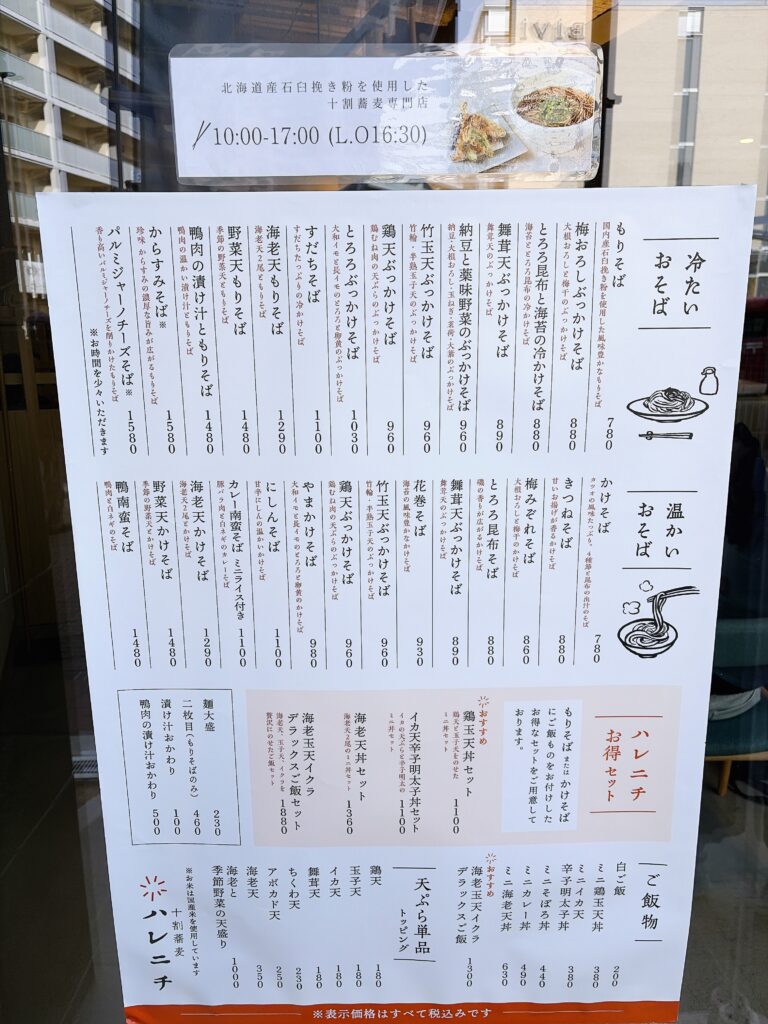 ivia
北海道産石臼挽き粉を使用した
十割蕎麦専門店
10:00-17:00 (L.O16:30)
冷たい
おそば
もりそば 780
国内産石臼挽き粉を使用した風味豊かなもりそば
梅おろしぶっかけそば 880
大根おろしと梅干のぶっかけそば
とろろ昆布と海苔の冷かけそば 880
海苔ととろろ昆布の冷かけそば
舞茸天ぶっかけそば 890
舞茸天のぶっかけそば
納豆と薬味野菜のぶっかけそば 960
納豆・大根おろし・玉ねぎ・茗荷・大葉のぶっかけそば
竹玉天ぶっかけそば 960
竹輪・半熟玉子天のぶっかけそば
鶏天ぶっかけそば 960
鶏むね肉の天ぷらのぶっかけそば
とろろぶっかけそば 1030
大和イモと長イモのとろろと卵黄のぶっかけそば
すだちそば 1100
すだちたっぷりの冷かけそば
海老天もりそば 1290
海老天2尾ともりそば
野菜天もりそば 1480
季節の野菜天ともりそば
鴨肉の漬け汁ともりそば 1480
鴨肉の温かい漬け汁ともりそば
からすみそば※ 1580
珍味・からすみの濃厚な旨みが広がるもりそば
パルミジャーノチーズそば※ 1580
香り高いパルミジャーノチーズを削りかけたもりそば
※お時間を少々いただきます
温かい
おそば
かけそば 780
カツオの風味たっぷり、4種節と昆布の出汁のそば
きつねそば 880
甘いお揚げが香るかけそば
梅みぞれそば 860
大根おろしと梅干のかけそば
とろろ昆布そば 880
磯の香りが広がるかけそば
舞茸天ぶっかけそば 890
舞茸天のぶっかけそば
花巻そば 930
海苔の風味豊かなかけそば
竹玉天ぶっかけそば 960
竹輪・半熟玉子天のぶっかけそば
鶏天ぶっかけそば 960
鶏むね肉の天ぷらのぶっかけそば
やまかけそば 980
大和イモと長イモのとろろと卵黄のかけそば
にしんそば 1100
甘辛にしんの温かいかけそば
カレー南蛮そば ミニライス付き 1100
豚バラ肉と白ネギのカレーそば
海老天かけそば 1290
海老天2尾とかけそば
野菜天かけそば 1480
季節の野菜天とかけそば
鴨南蛮そば 1480
鴨肉と白ネギのそば
ハレニチ
お得セット
もりそば または かけそば
にご飯ものをお付けした
お得なセットをご用意して
おります。
おすすめ
鶏玉天丼セット 1100
鶏天と玉子天をのせた
ミニ丼セット
イカ天辛子明太子丼セット 1100
イカの天ぷらと辛子明太の
ミニ丼セット
海老天丼セット 1360
海老天2尾のミニ丼セット
海老玉天イクラ
デラックスご飯セット 1880
海老天、玉子天、イクラを
贅沢にのせたご飯セット
麺大盛 230
二枚目(もりそばのみ) 460
漬け汁おかわり 100
鴨肉の漬け汁おかわり 500
ご飯物
白ご飯 200
ミニ鶏玉天丼 380
ミニイカ天
辛子明太子丼 380
ミニそぼろ丼 440
ミニカレー丼 490
ミニ海老天丼 630
おすすめ
海老玉天イクラ
デラックスご飯 1300
天ぷら単品
トッピング
鶏天 180
玉子天 180
イカ天 180
舞茸天 180
ちくわ天 230
アボカド天 250
海老天 350
海老と
季節野菜の天盛り 1000
※お米は国産米を使用しています
十割蕎麦
ハレニチ
※表示価格はすべて税込みです